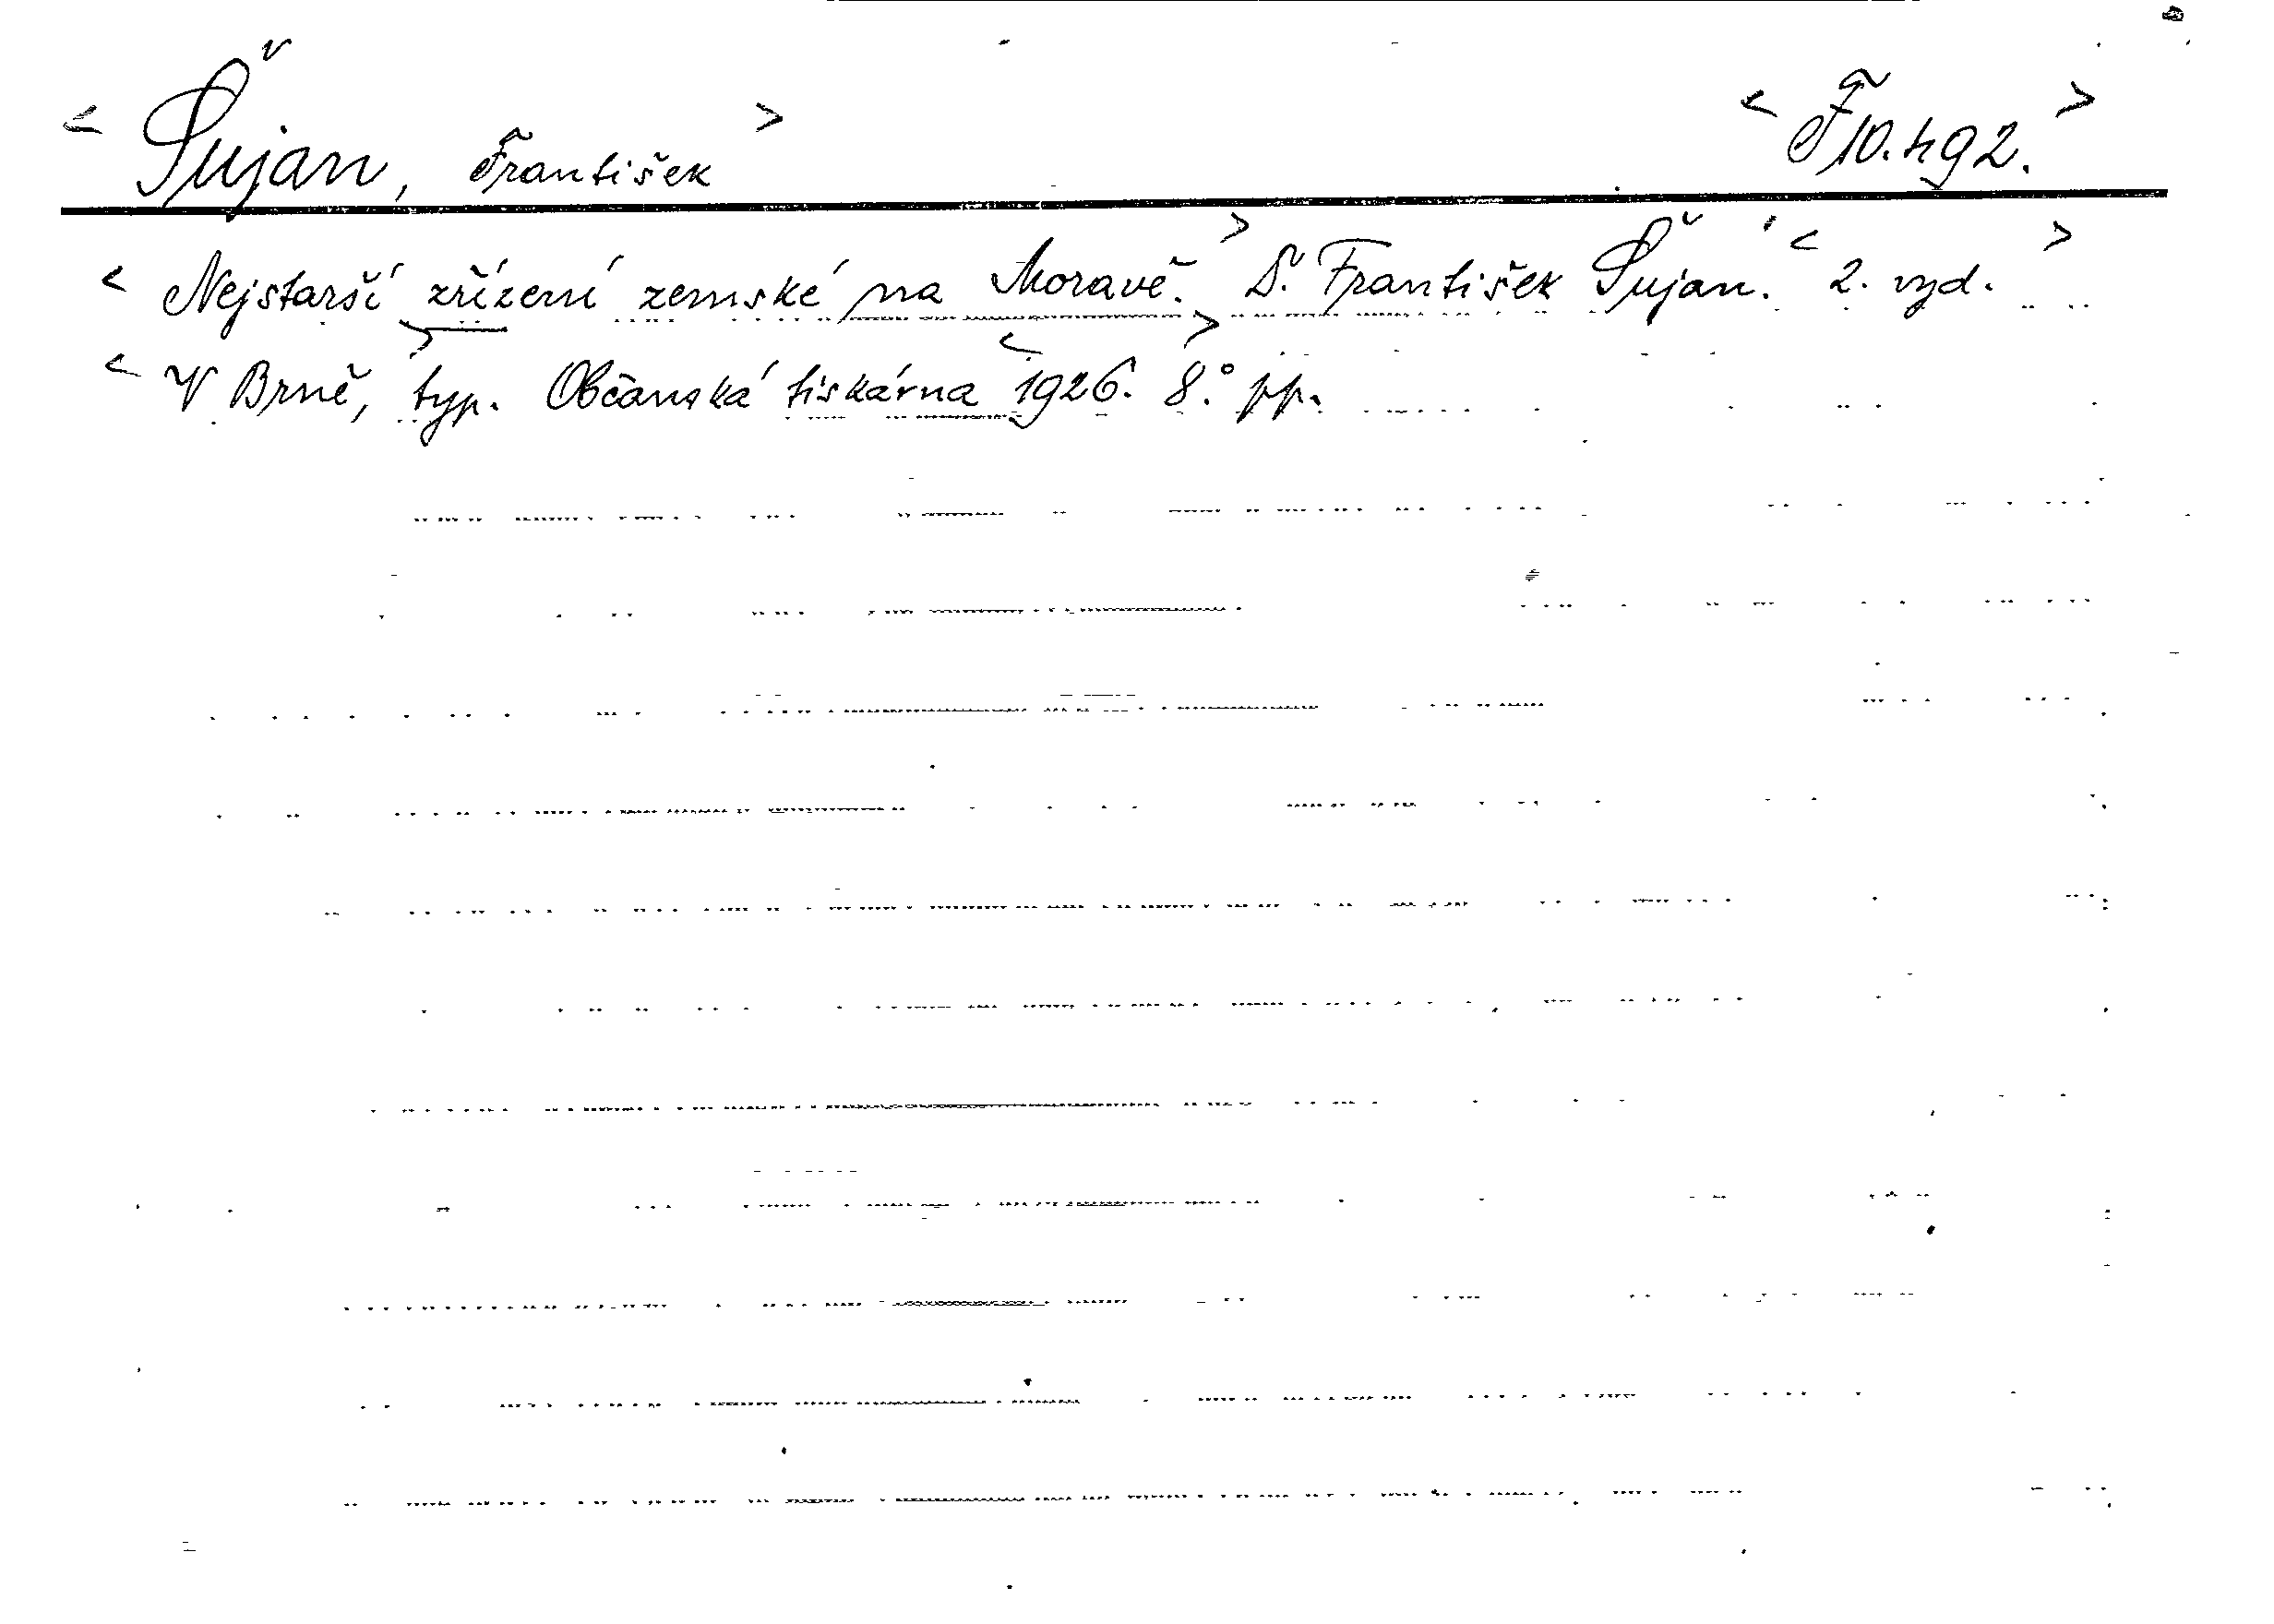 < Šujan, František > < F10.492. >
< Nejstarší zřízení zemské na Moravě. > D. František Šujan. < 2. vyd. >
< V Brně, > typ. Občanská tiskárna < 1926. > 8.° pp.